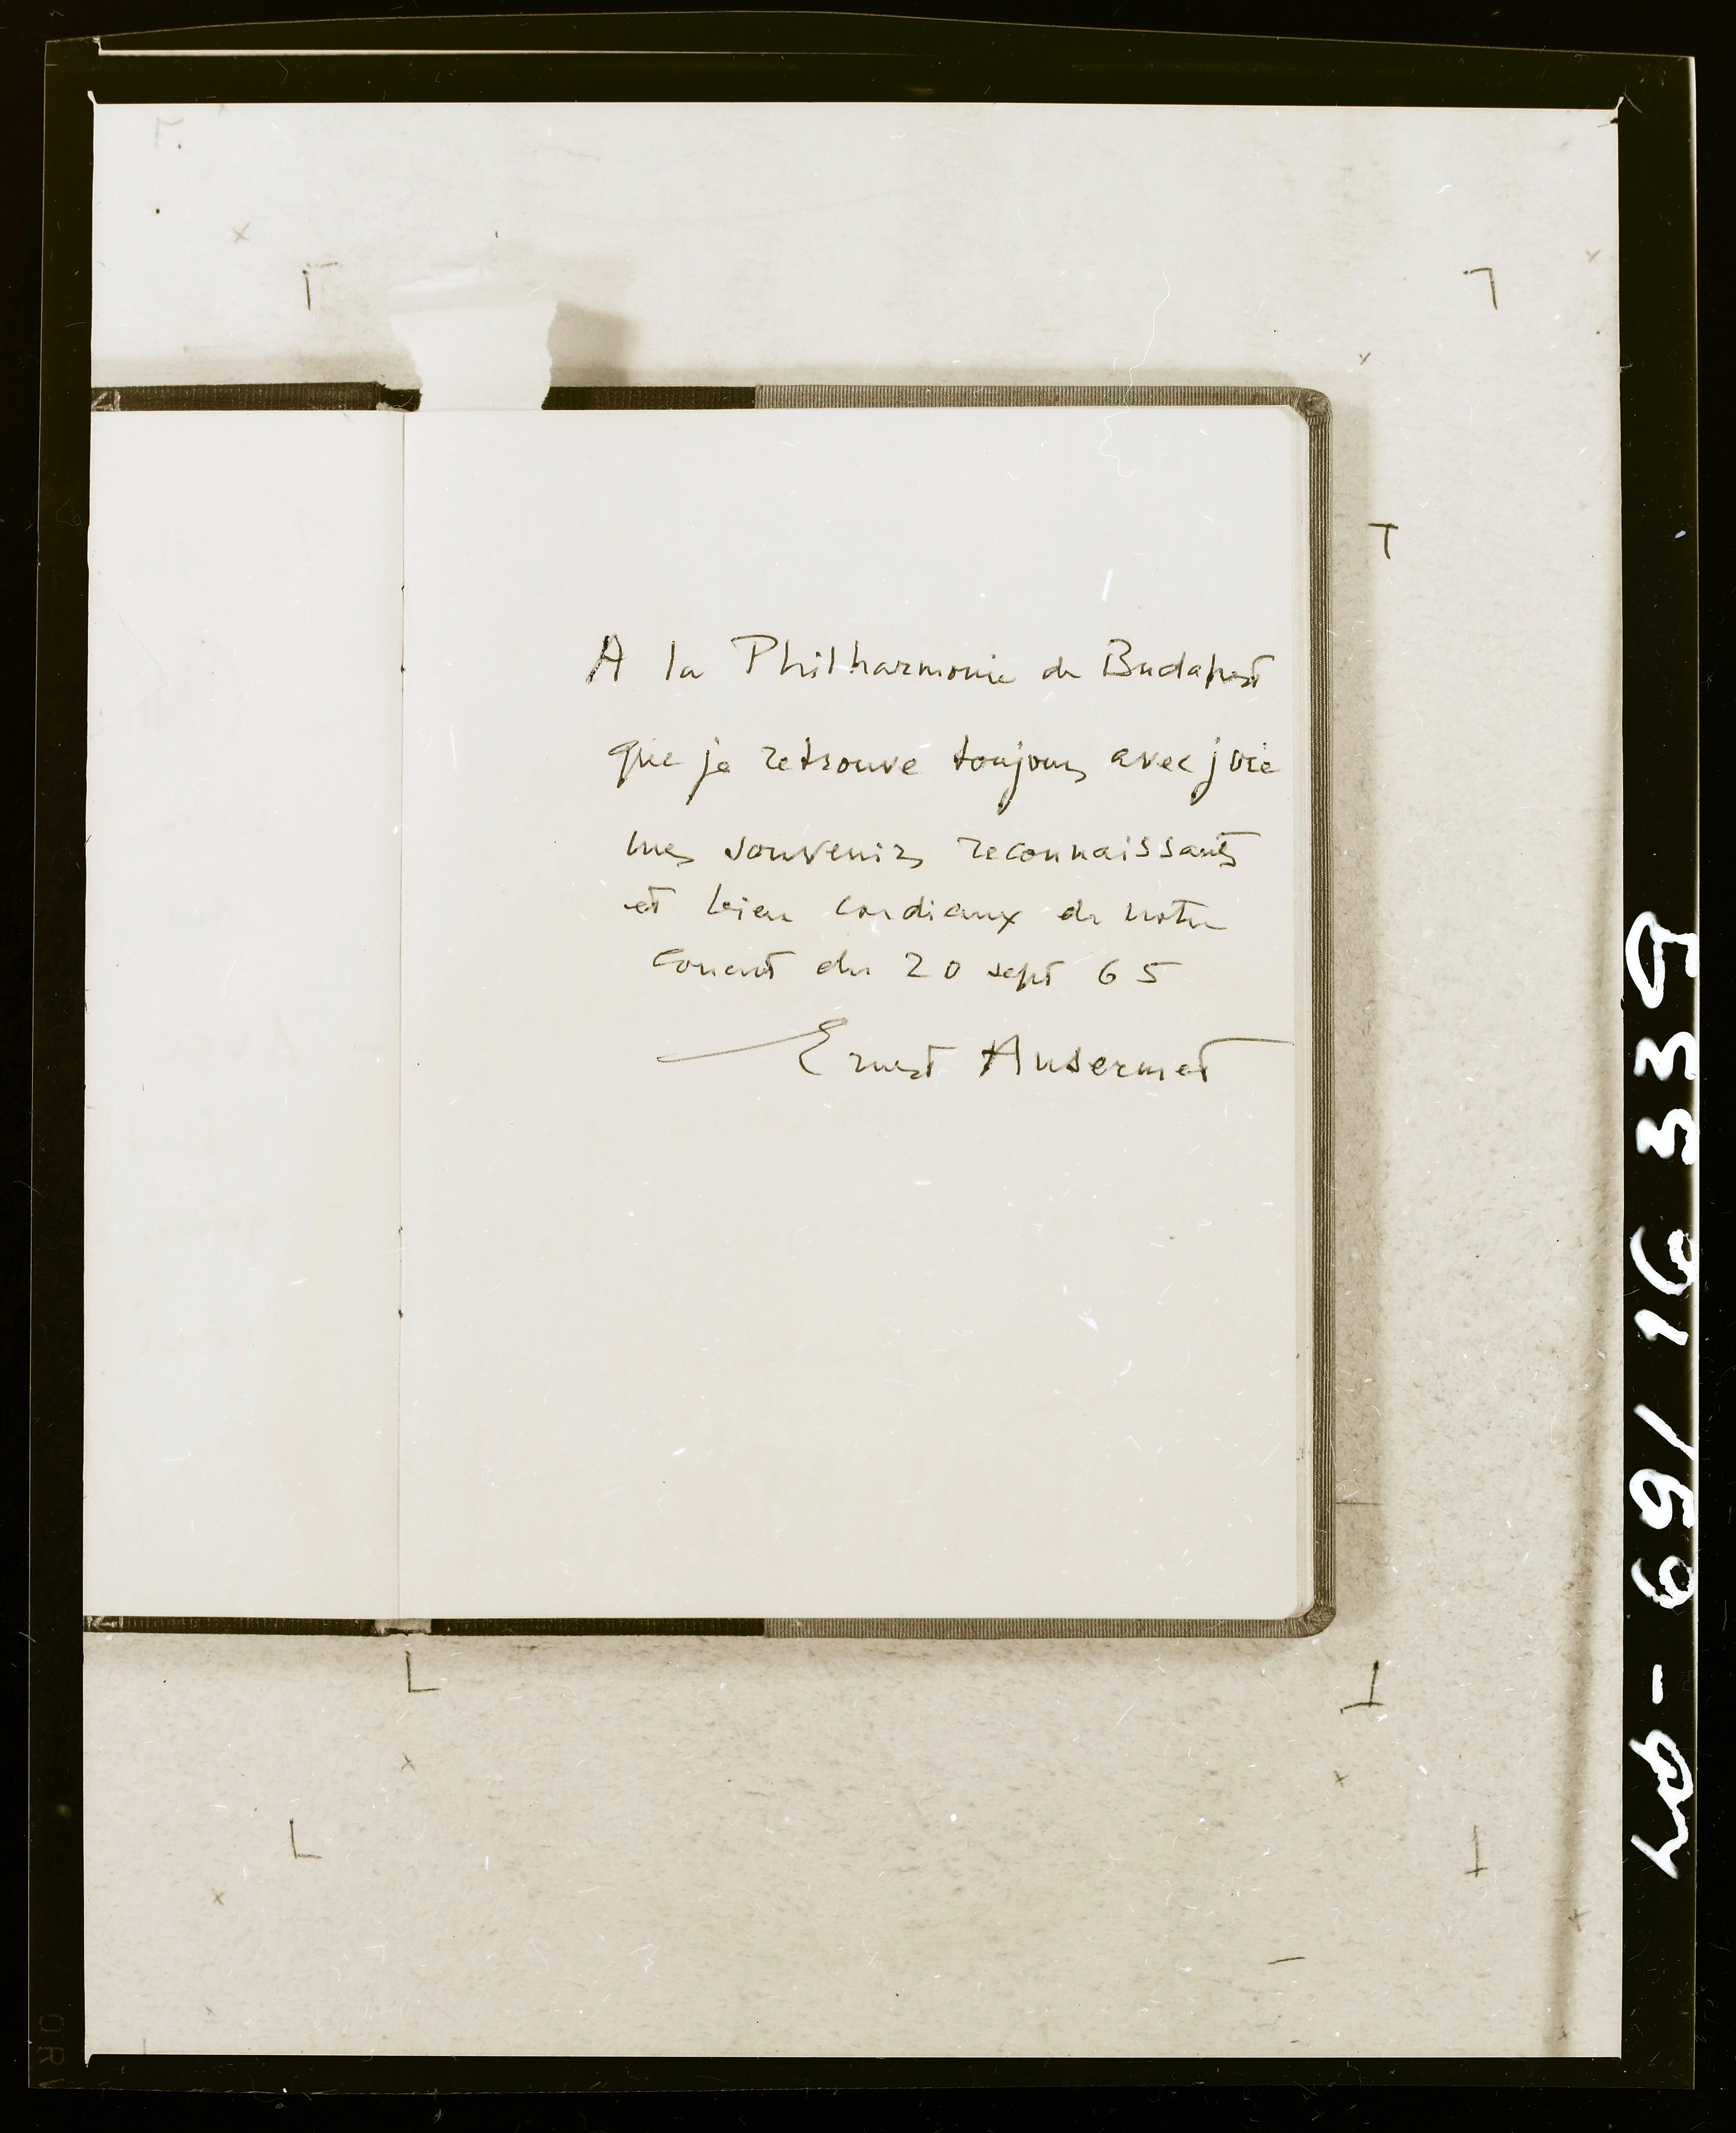 A la Philharmonie de Budapest
que je retrouve toujours avec joie
mes souvenirs reconnaissants
et bien cordiaux de notre
concert du 20 sept 65
Ernest Ansermet